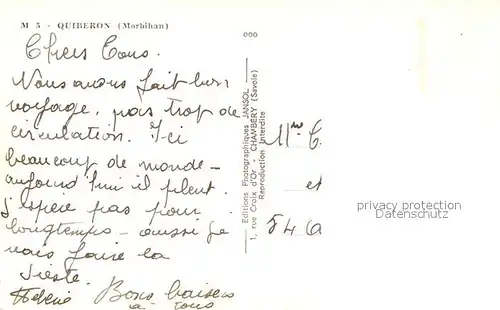 M 5 - QUIBERON (Morbihan)
Chers Tous.
Nous avons fait bon
voyage, pas trop de
circulation. Ici
beaucoup de monde -
aujourd'hui il pleut.
J'espère pas pour
longtemps - aussi je
vais faire la
sieste.
Hélène Bons baisers
a tous
Editions Photographiques JANSOL
1, rue Croix d'Or - CHAMBÉRY (Savoie)
Reproduction Interdite
et
privacy protection
Datenschutz